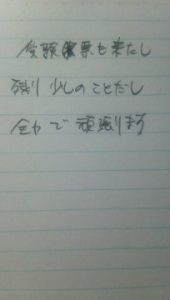 受験票も来たし
残り少しのことだし
全力で頑張ります